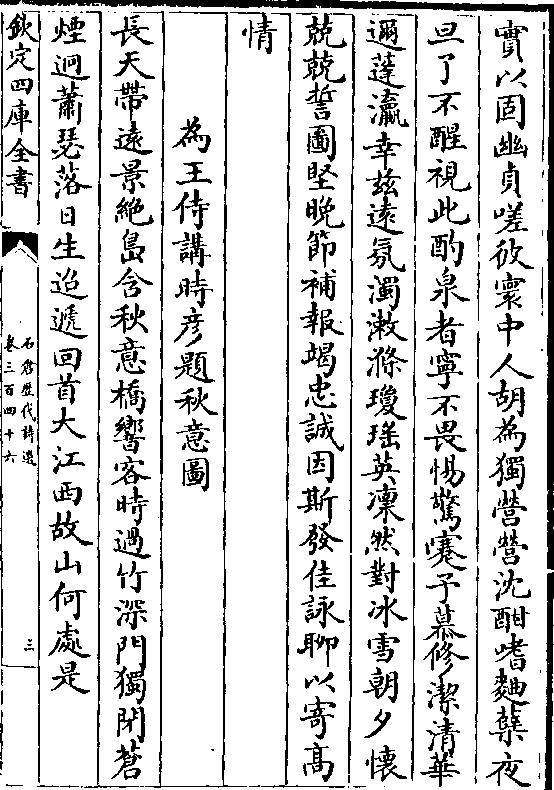 實以固幽貞嗟彼寰中人胡為獨營營沈酣嗜麯糵夜
旦了不醒視此酌泉者寧不畏惕驚寋予慕修潔清華
邇蓬瀛幸兹遠氛濁漱滌瓊瑤英凜然對冰雪朝夕懷
兢兢誓圖堅晚節補報竭忠誠因斯發佳詠聊以寄高
情
為王侍講時彦題秋意圖
長天帶遠景絶島含秋意橋響客時過竹深門獨閉蒼
煙迥蕭瑟落日生迢遞回首大江西故山何處是
欽定四庫全書
石倉歷代詩選
卷三百四十六
三